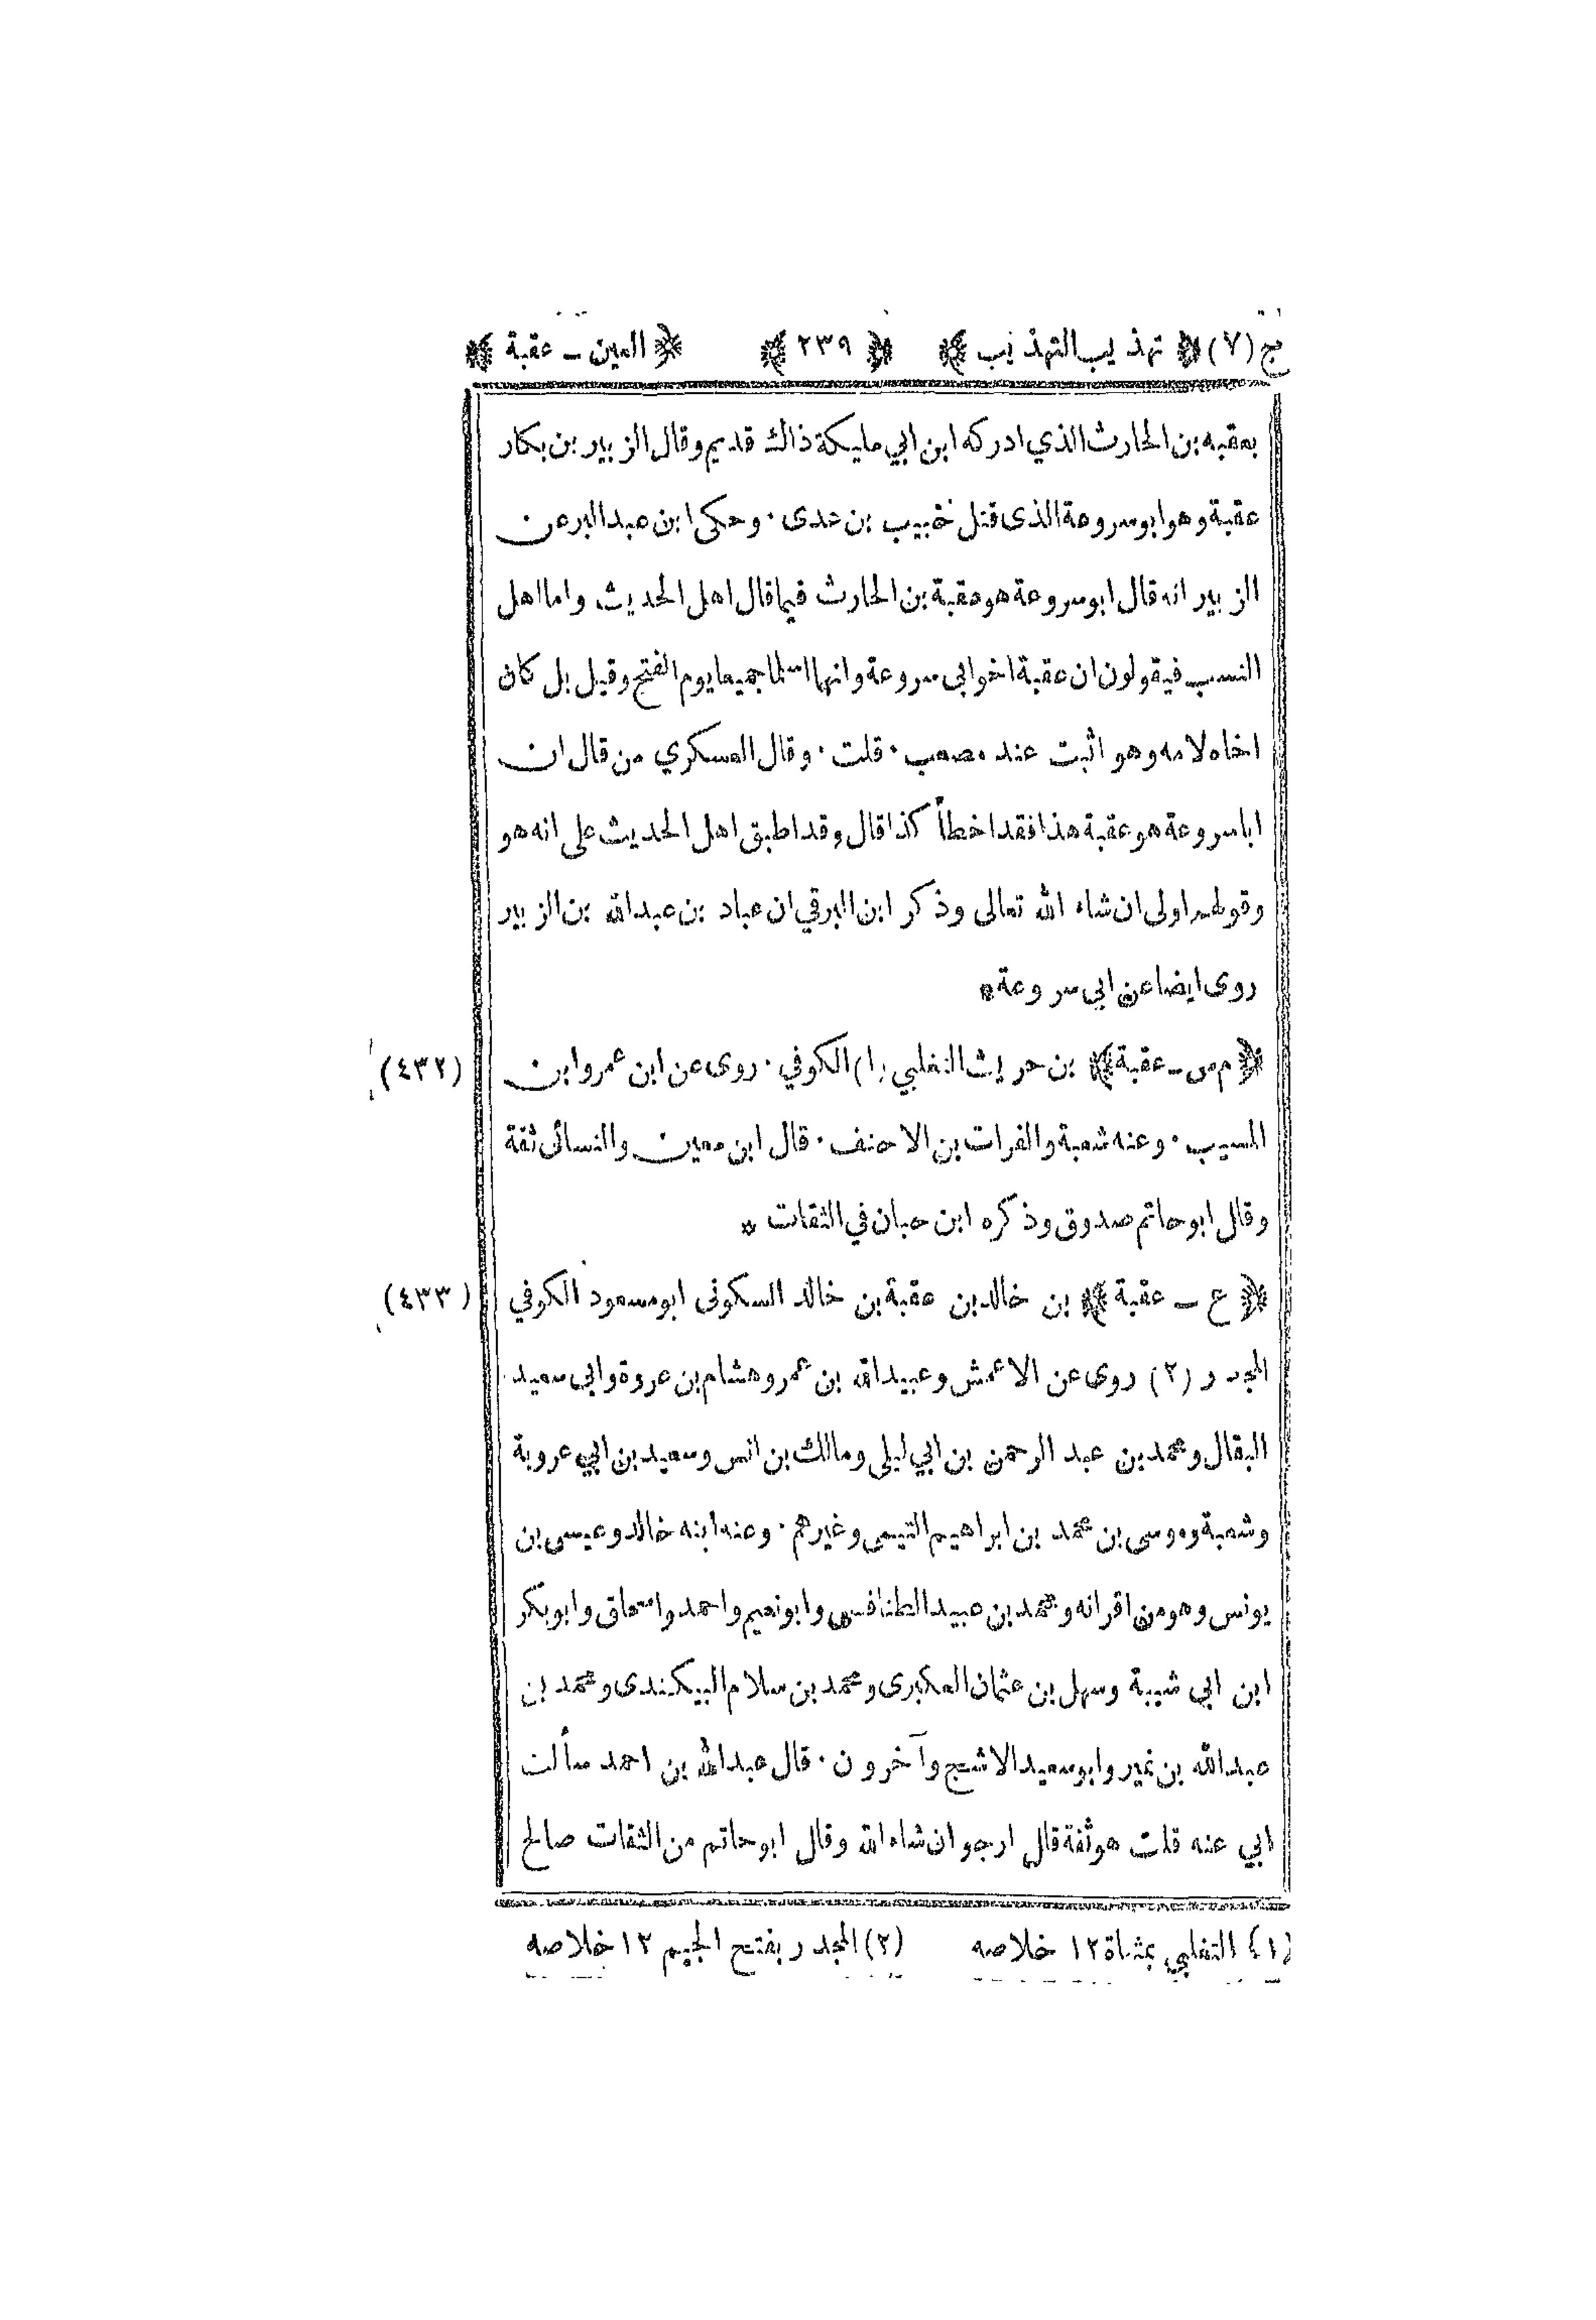 ج (٧) ﴿ تهذيب التهذيب ﴾ ﴿ ٢٣٩ ﴾ ﴿ العين ــ عقبة ﴾
بعقبه بن الحارث الذي ادركه ابن ابي مليكة ذاك قديم وقال الزبير بن بكار
عقبة وهو ابو سروعة الذى قتل خبيب بن عدى ٠ وحكى ابن عبد البر عن
الزبير انه قال ابو سروعة هو عقبة بن الحارث فيما قال اهل الحديث واما اهل
النسب فيقولون ان عقبة اخو ابى سروعة وانهما اسلما جميعا يوم الفتح وقيل بل كان
اخاه لامه وهو اثبت عند مصعب ٠ قلت ٠ وقال العسكري من قال ان
ابا سروعة هو عقبة هذا فقد اخطأ كذا قال وقد اطبق اهل الحديث على انه هو
وقولهم اولى ان شاء الله تعالى وذكر ابن البرقي ان عباد بن عبد الله بن الزبير
روى ايضا عن ابي سروعة *
﴿ م س ــ عقبة ﴾ بن حريث التغلبي (١) الكوفي ٠ روى عن ابن عمر وابن (٤٣٢)
المسيب ٠ وعنه شعبة والفرات بن الاحنف ٠ قال ابن معين والنسائى ثقة
وقال ابو حاتم صدوق وذكره ابن حبان في الثقات *
﴿ ع ــ عقبة ﴾ بن خالد بن عقبة بن خالد السكونى ابو مسعود الكوفي (٤٣٣)
المجدر (٢) روى عن الاعمش وعبيد الله بن عمر وهشام بن عروة وابى سعيد
البقال ومحمد بن عبد الرحمن بن ابي ليلى ومالك بن انس وسعيد بن ابي عروبة
وشعبة وموسى بن محمد بن ابراهيم التيمى وغيرهم ٠ وعنه ابنه خالد وعيسى بن
يونس وهو من اقرانه ومحمد بن عبيد الطنافسى وابو نعيم واحمد واسحاق وابو بكر
ابن ابي شيبة وسهل بن عثمان العكبرى ومحمد بن سلام البيكندى ومحمد بن
عبد الله بن نمير وابو سعيد الاشج وآخرون ٠ قال عبد الله بن احمد سألت
ابي عنه قلت هو ثقة قال ارجو ان شاء الله وقال ابو حاتم من الثقات صالح
(١) التغلبي بمثناة ١٢ خلاصه (٢) المجدر بفتح الجيم ١٢ خلاصه